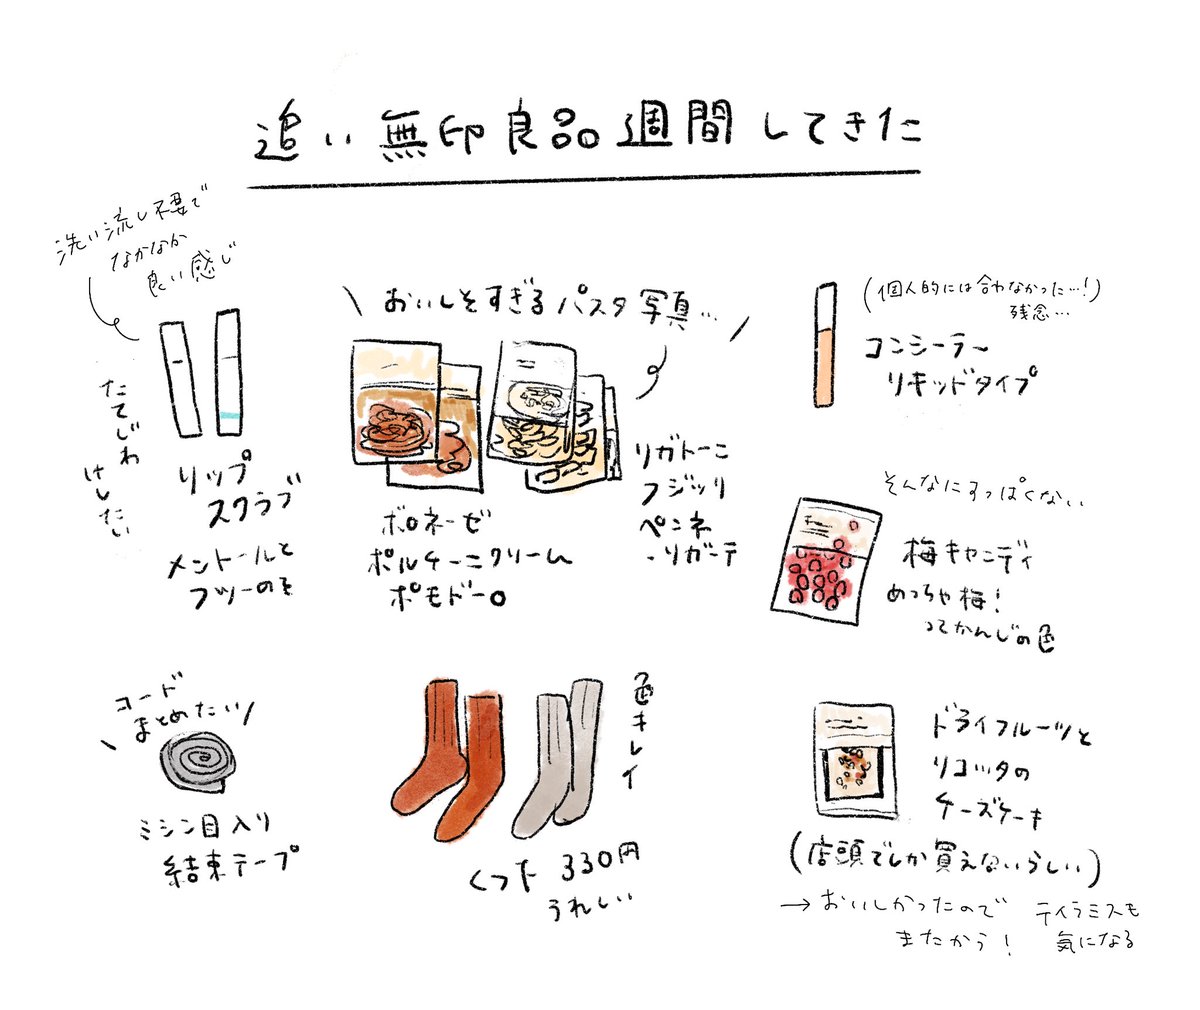 追い無印良品週間してきた
洗い流し不要で
なかなか
良い感じ
たてじわ
けしたい
リップ
スクラブ
メントールと
フツーのを
おいしそすぎるパスタ写真…
リガトーニ
フジッリ
ペンネ
・リガーテ
ボロネーゼ
ポルチーニクリーム
ポモドーロ
(個人的には合わなかった…!)
残念…
コンシーラー
リキッドタイプ
そんなにすっぱくない
梅キャンディ
めっちゃ梅!
ってかんじの色
コード
まとめたい
ミシン目入り
結束テープ
色キレイ
くつ下 330円
うれしい
ドライフルーツと
リコッタの
チーズケーキ
(店頭でしか買えないらしい)
→おいしかったので
またかう!
ティラミスも
気になる